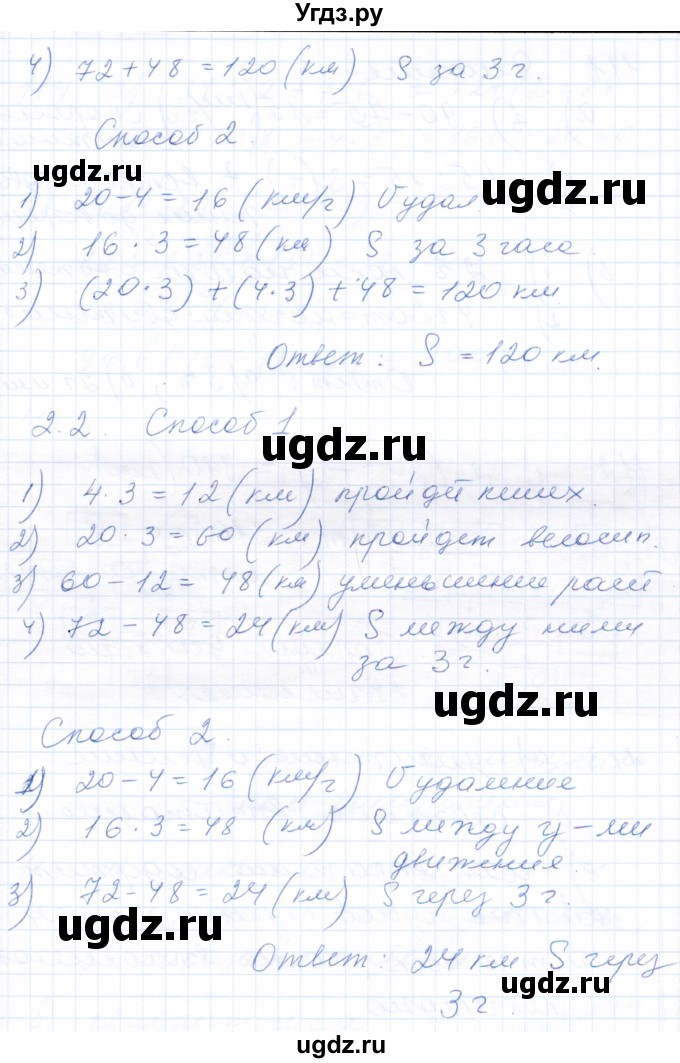 Угдз.ру
4) 72 + 48 = 120 (км) S за 3 ч.
Способ 2.
ugdz.ru
ugdz.ru
1) 20 - 4 = 16 (км/ч) V удал.
2) 16 · 3 = 48 (км) S за 3 часа.
ugdz.ru
3) (20 · 3) + (4 · 3) + 48 = 120 км
Ответ: S = 120 км.
2.2. Способ 1
ugdz.ru
1) 4 · 3 = 12 (км) пройдет пеших.
ugdz.ru
2) 20 · 3 = 60 (км) пройдет велосип.
3) 60 - 12 = 48 (км) уменьшение расст
4) 72 - 48 = 24 (км) S между ними
за 3 ч.
ugdz.ru
Способ 2.
1) 20 - 4 = 16 (км/ч) V удаление
ugdz.ru
2) 16 · 3 = 48 (км) S между у-ми
движения.
3) 72 - 48 = 24 (км) S через 3 ч.
ugdz.ru
Ответ: 24 км S через
3 ч.
ugdz.ru
ugdz.ru